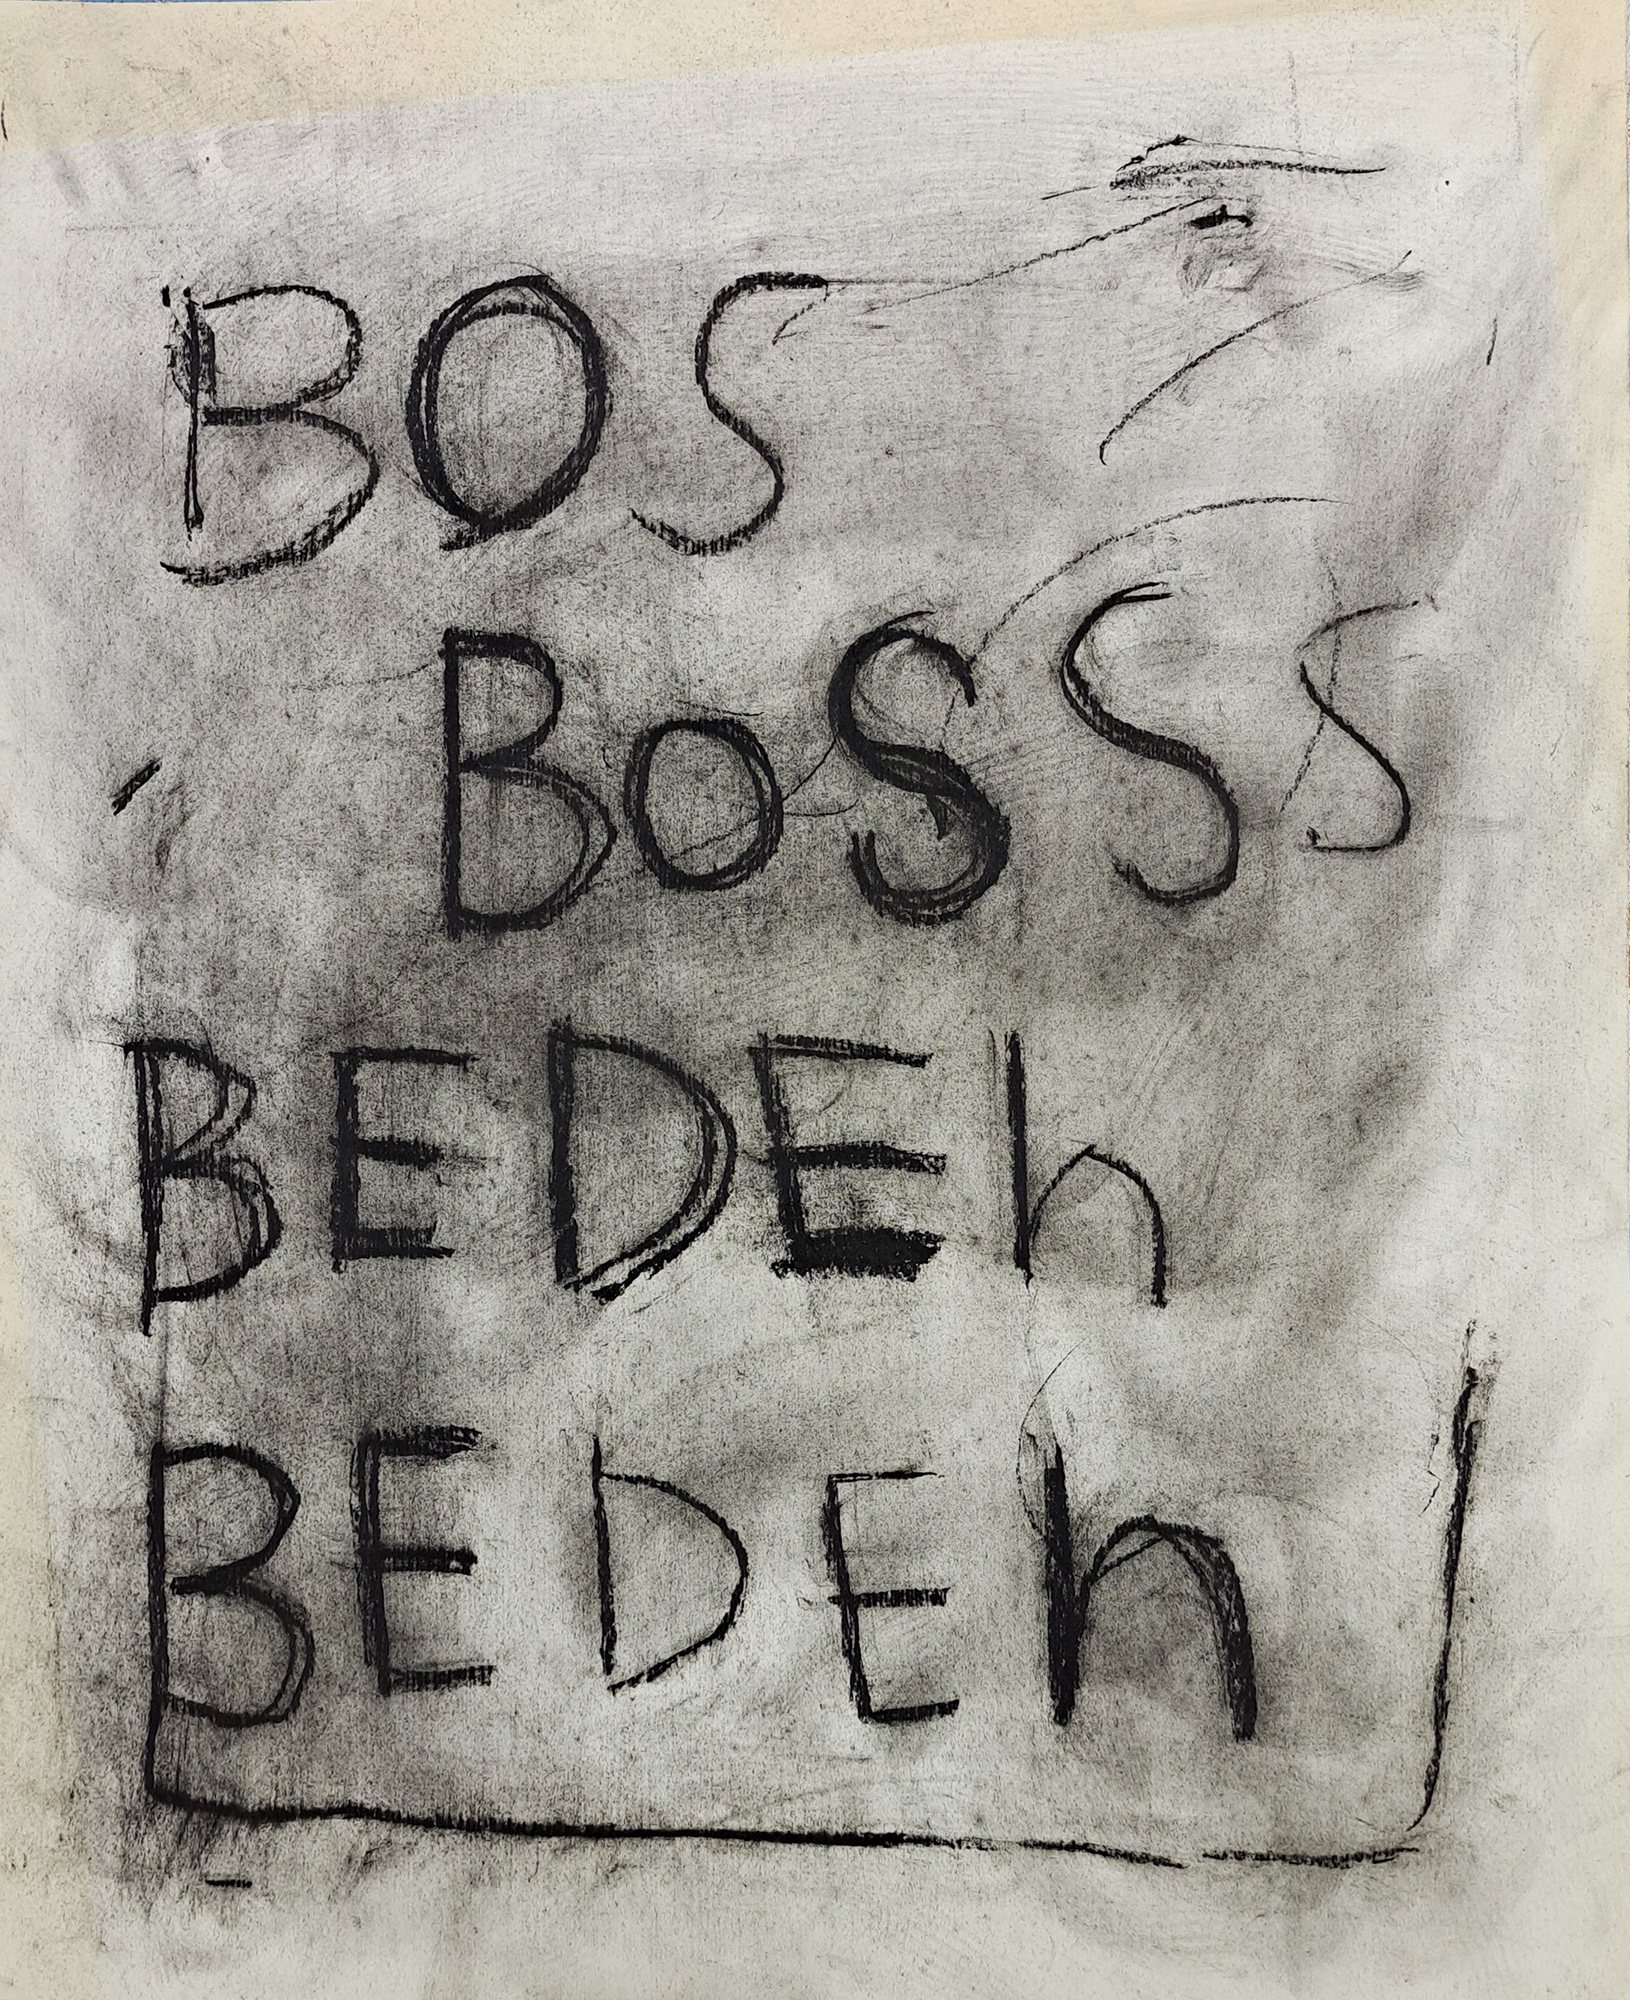 BOS
BoSSS
BEDEh
BEDEh